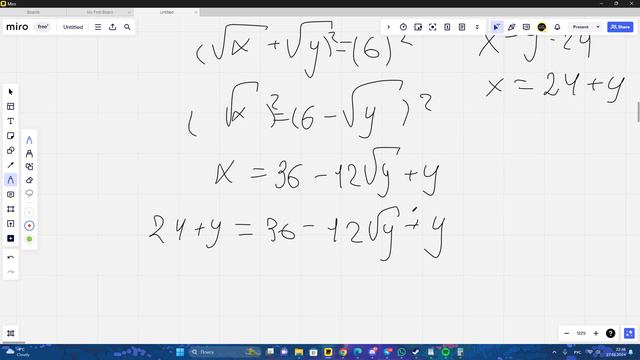 Boards
My First Board
Untitled
miro
free
Untitled
Present
Share
(√x + √y)² = (6)²
x = y + 24
x = 24 + y
(√x)² = (6 - √y)²
x = 36 - 12√y + y
24 + y = 36 - 12√y + y
122%
Cloudy
Поиск
РУС
22:46